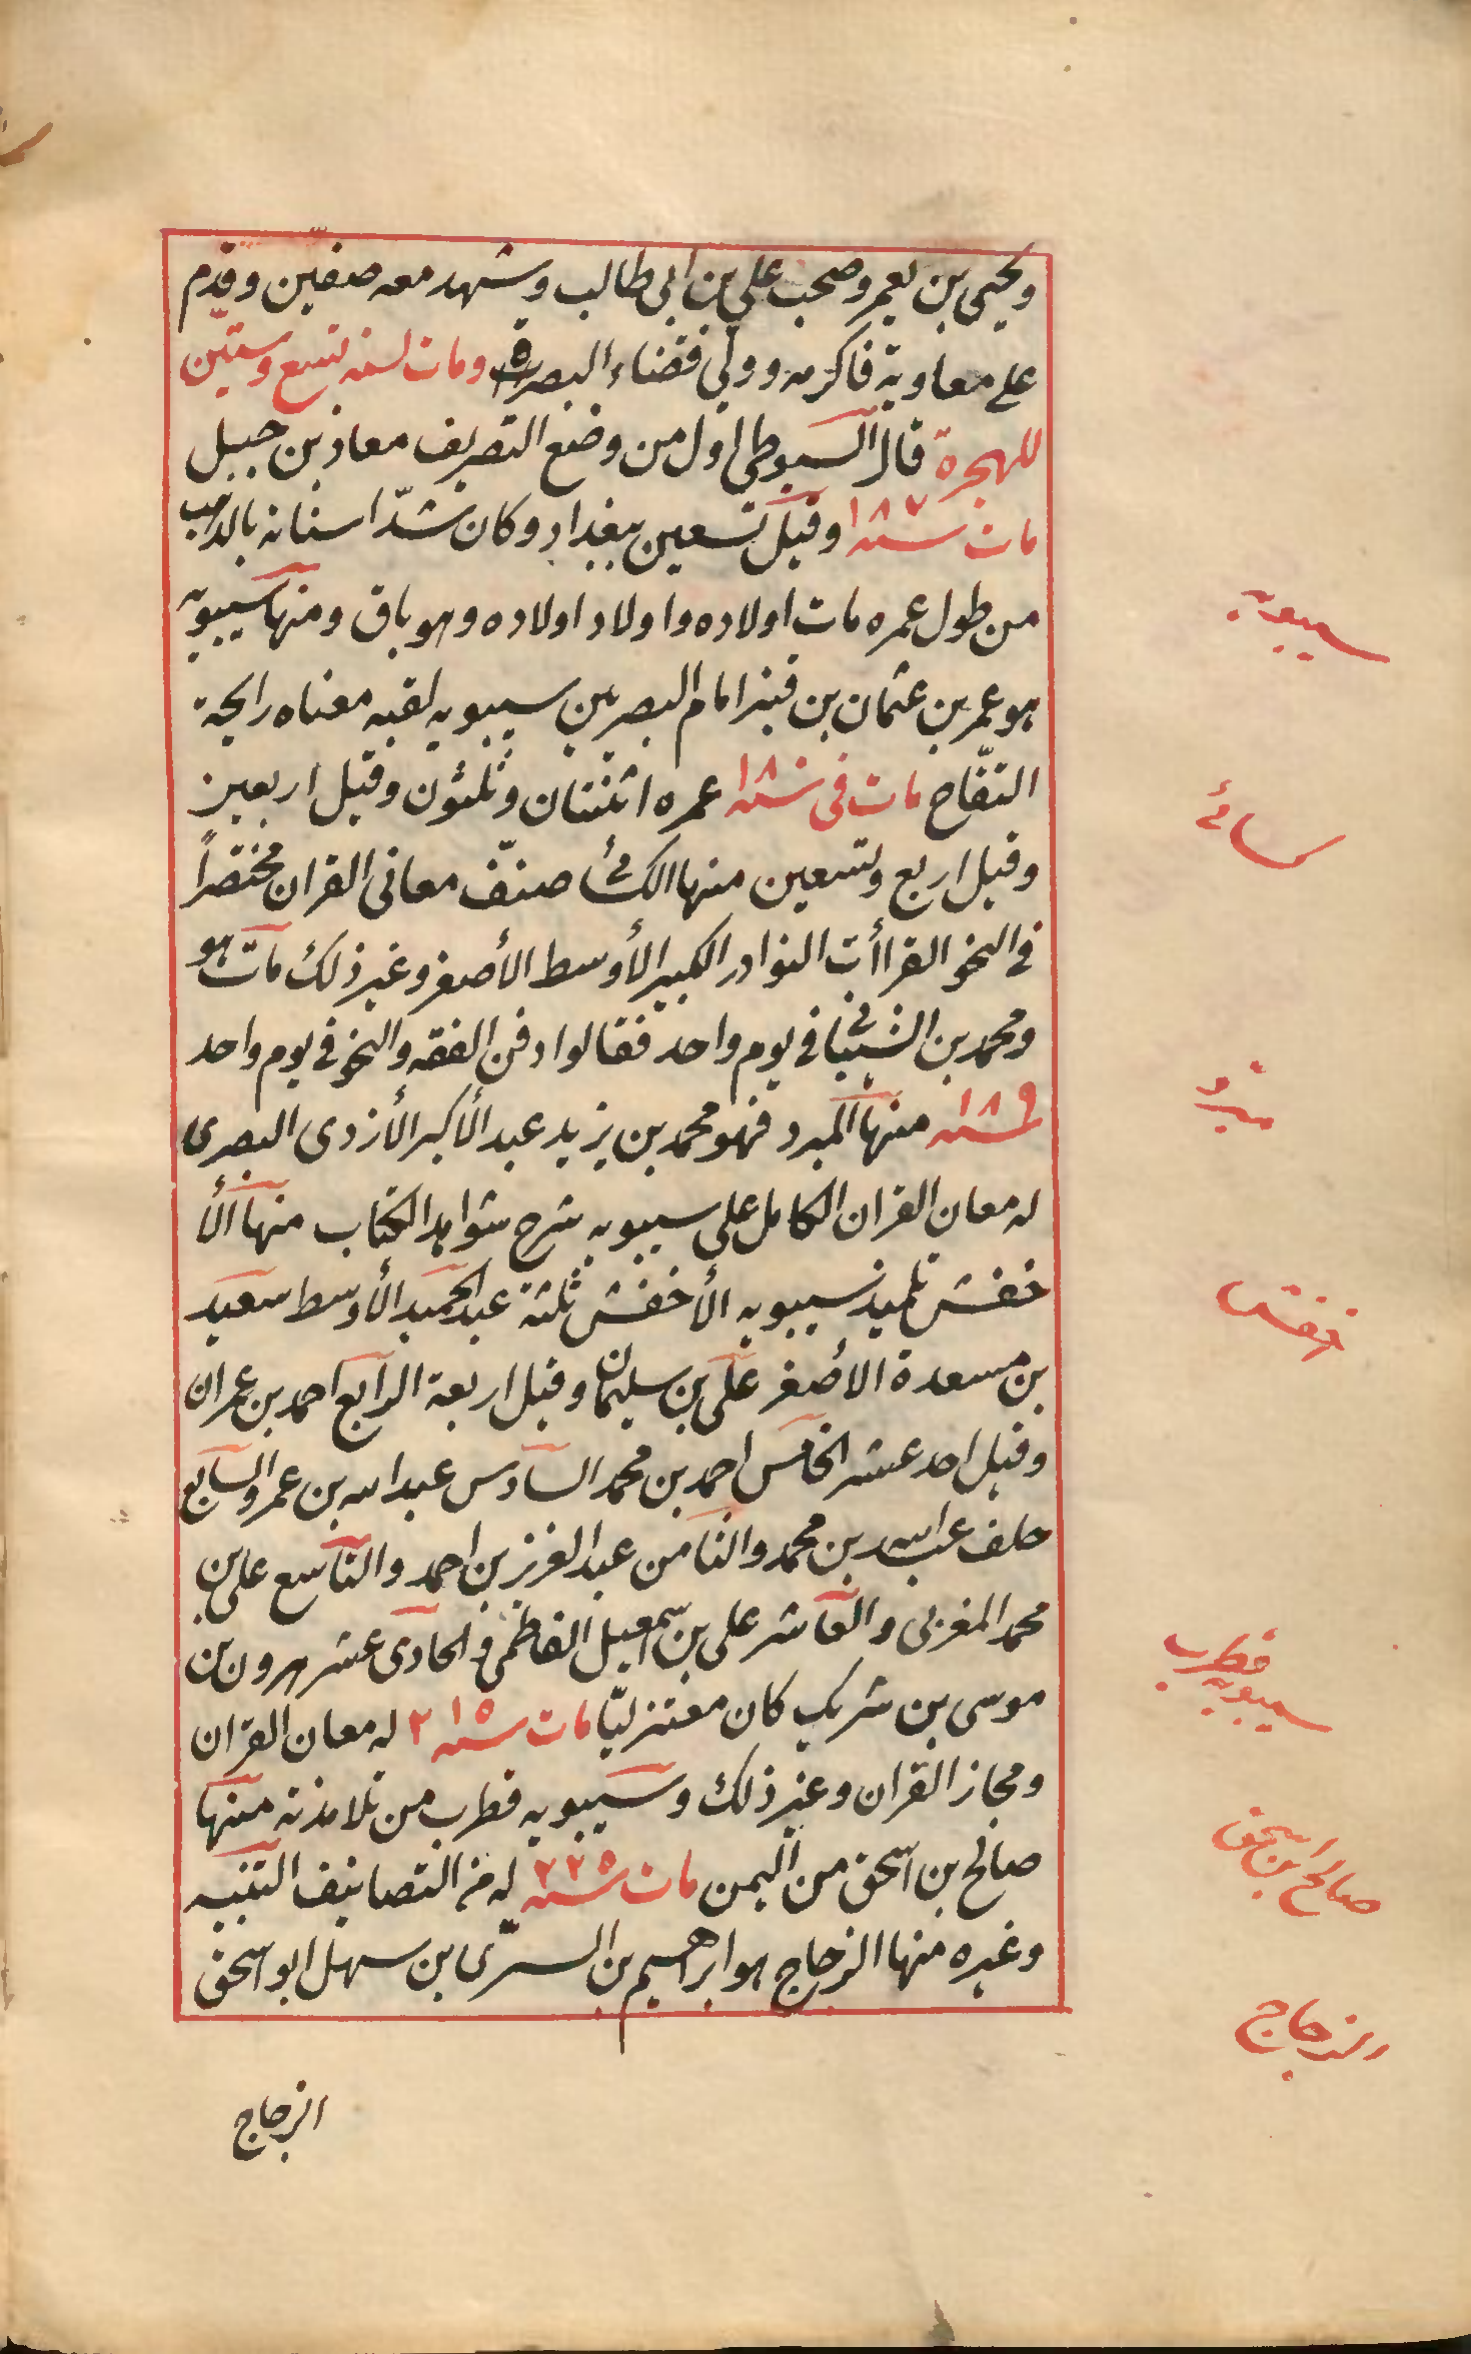 ويحيى بن يعمر وصحب علي بن ابى طالب وشهد معه صفّين وقدم
على معاوية فاكرمه وولى قضاء البصرة ومات لسنه تسع وستين
للهجرة قال السيوطى اول من وضع التصريف معاذ بن جبل
مات سنه ١٨٧ وقيل تسعين ببغداد وكان شدّ اسنانه بالذهب
من طول عمره مات اولاده واولاد اولاده وهو باق ومنها سيبويه
هو عمر بن عثمان بن قنبر امام البصريين سيبويه لقبه معناه رايحة
التفّاح مات فى سنه ١٨٠ عمره اثنتان وثلثون وقيل اربعين
وقيل اربع وتسعين منها الكسائى صنّف معانى القران مختصراً
فى النحو القراأت النوادر الكبير الأوسط الأصغر وغير ذلك مات هو
ومحمد بن الشيبانى فى يوم واحد فقالوا دفن الفقه والنحو فى يوم واحد
سنه ١٨٩ منها المبرد فهو محمد بن يزيد عبد الأكبر الأزدى البصرى
له معان القران الكامل على سيبويه شرح شواهد الكتاب منها الأ
خفش تلميذ سيبويه الأخفش ثلثة عبد الحميد الأوسط سعيد
بن مسعدة الأصغر على بن سليمان وقيل اربعة الرابع احمد بن عمران
وقيل احد عشر الخامس احمد بن محمد السادس عبد الله بن عمر والسابع
خلف عبد الله بن محمد والثامن عبد العزيز بن احمد والتاسع على بن
محمد المغربى والعاشر على بن سمعيل الفاطمى والحادى عشر هرون بن
موسى بن شريك كان معتزليّا مات سنه ٢١٥ له معان القرّان
ومجاز القران وغير ذلك وسيبويه قطرب من تلامذته منها
صالح بن اسحق من اليمن مات سنه ٢٢٥ له من التصانيف التنبيه
وغيره منها الزجاج هو ابرهيم بن السرّى بن سهل ابو اسحق
الزجاج
سيبويه
كسائى
مبرد
اخفش
قطرب
سيبويه
صالح ابن اسحق
الزجاج